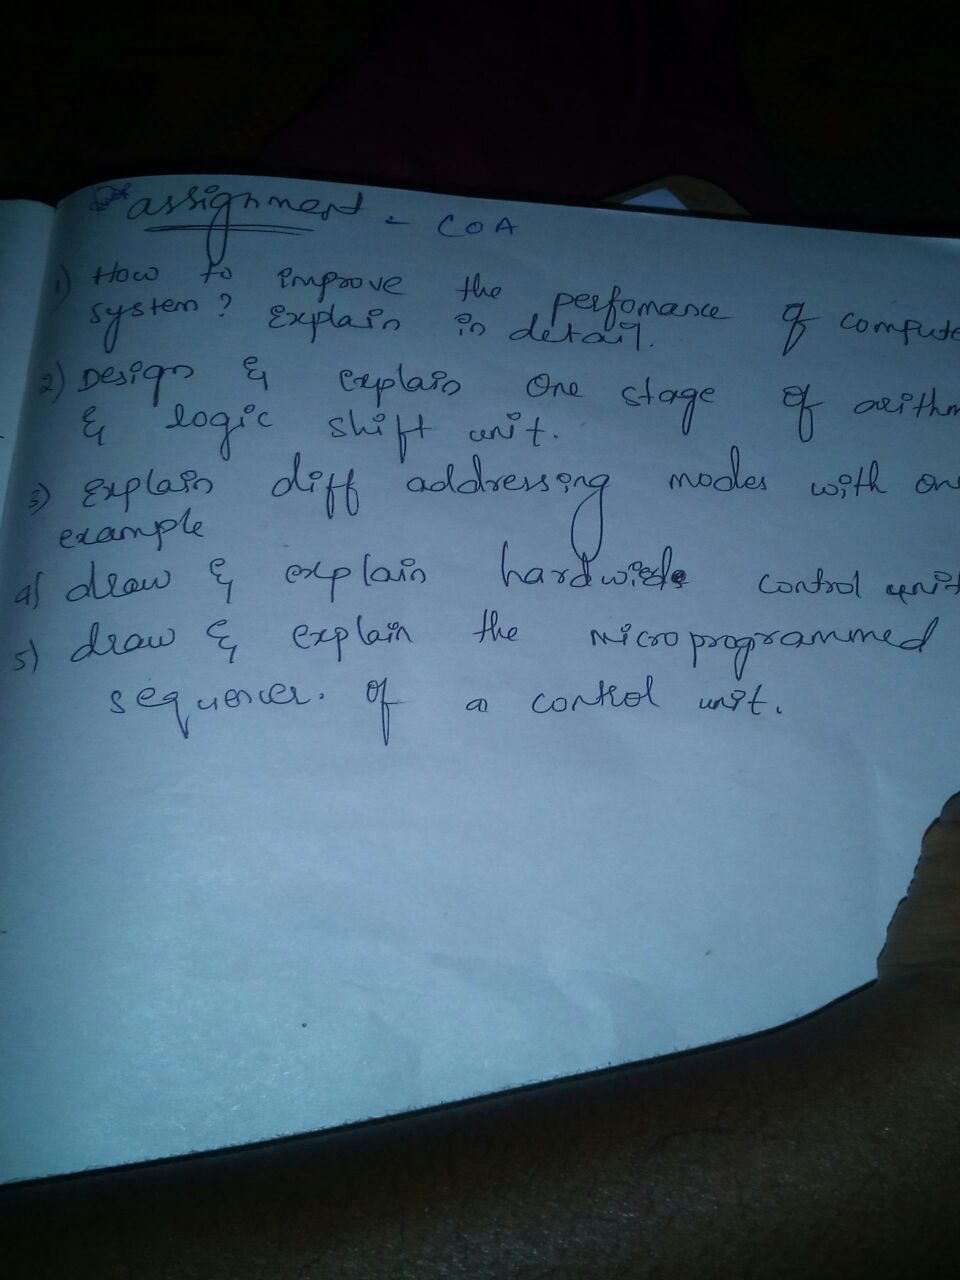 assignment - COA
1) How to improve the perfomance of compute
system? Explain in detail.
2) Design & explain One stage of arithm
& logic shift unit.
3) Explain diff addressing modes with one
example
4) draw & explain hardwired control unit
5) draw & explain the microprogrammed
sequencer. of a control unit.